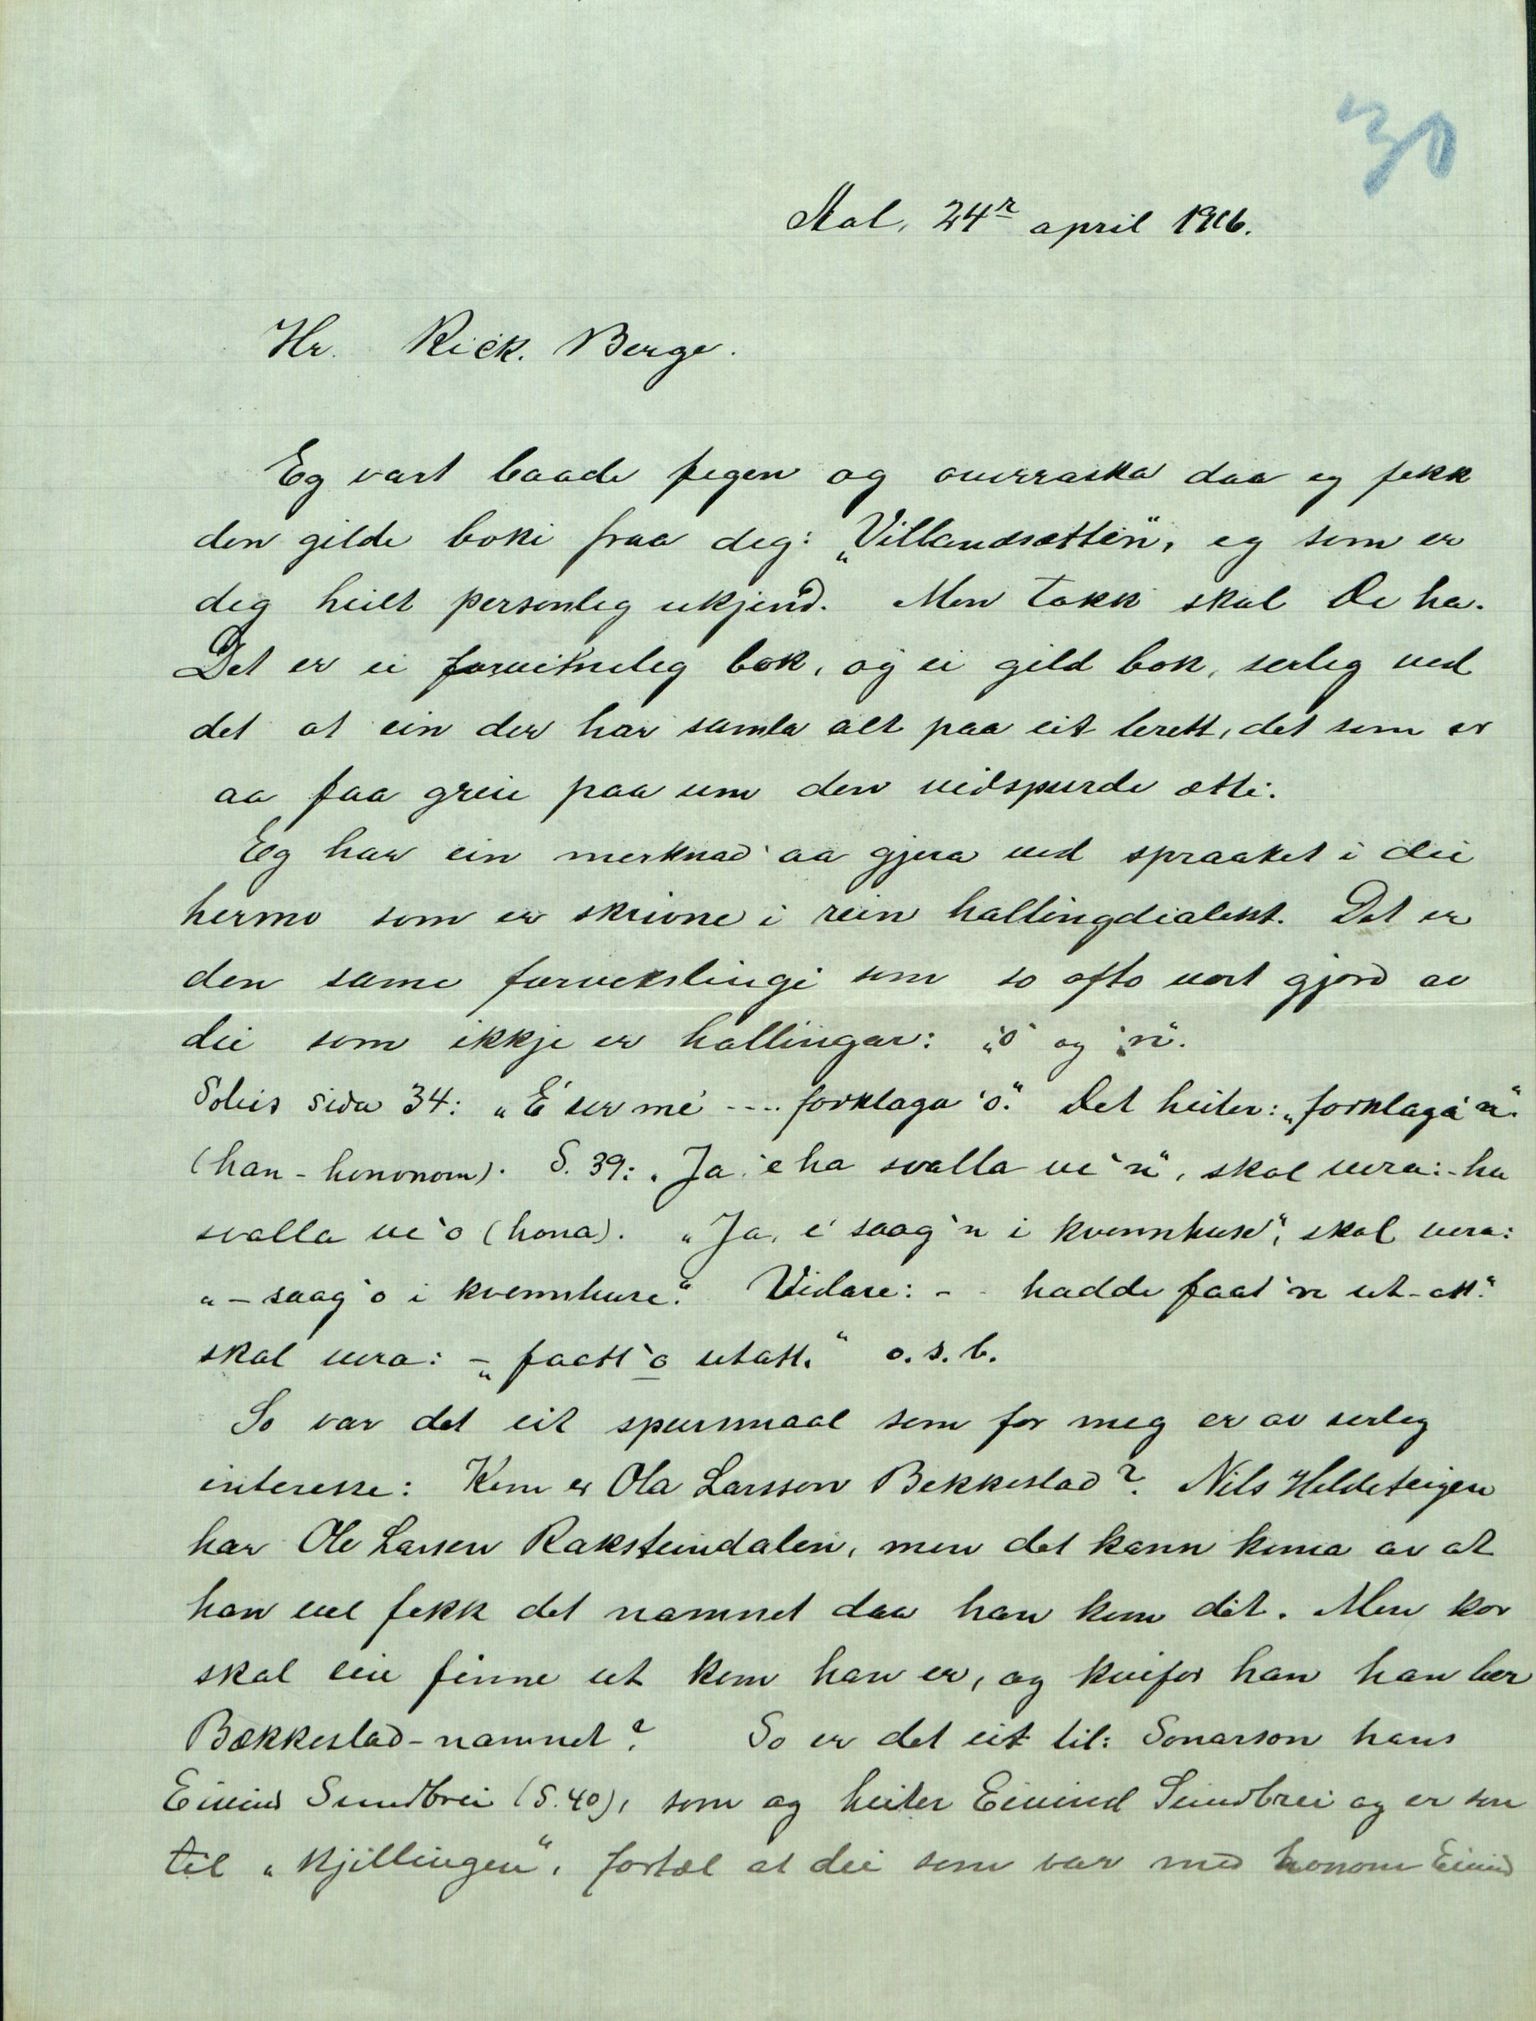 30
Aal, 24r april 1916.
Hr. Rick. Berge.
Eg vart baade fegen og overraska daa eg fekk
den gilde boki fraa deg: „Villandsætten", eg som er
deg heilt personleg ukjend. Men takk skal De ha.
Det er ei forvitneleg bok, og ei gild bok, serleg ved
det at ein der har samla alt paa eit brett, det som er
aa faa greie paa um den vidspurde ætti.
Eg har ein merknad aa gjera ved spraaket i dei
hermo som er skrivne i rein hallingdialekt. Det er
den same forvekslingi som so ofto vert gjord av
dei som ikkje er hallingar: „'o" og „'n".
Soleis sida 34: „E' ser me' .... forklaga 'o." Det heiter: „forklaga 'n".
(han - hononom). S. 39: „Ja e ha svalla ve 'n", skal vera: - ha
svalla ve 'o (hona). „Ja, e' saag 'n i kvennhuse", skal vera:
„- saag 'o i kvennhuse." Vidare: - - hadde faat 'n ut-att."
skal vera: - „faatt 'o utatt." o.s.b.
So var det eit spursmaal som for meg er av serleg
interesse: Kem er Ola Larsson Bekkestad? Nils Heldeteigen
har Ole Larsen Raksteindalen, men det kann koma av at
han vel fekk det namnet daa han kom dit. Men kor
skal ein finne ut kem han er, og kvifor han han ber
Bækkestad-namnet? So er det eit til: Sonarson hans
Eivind Sundbrei (S. 40), som og heiter Eivind Sundbrei og er son
til „Kjillingen", fortæl at dei som var med honom Eivind